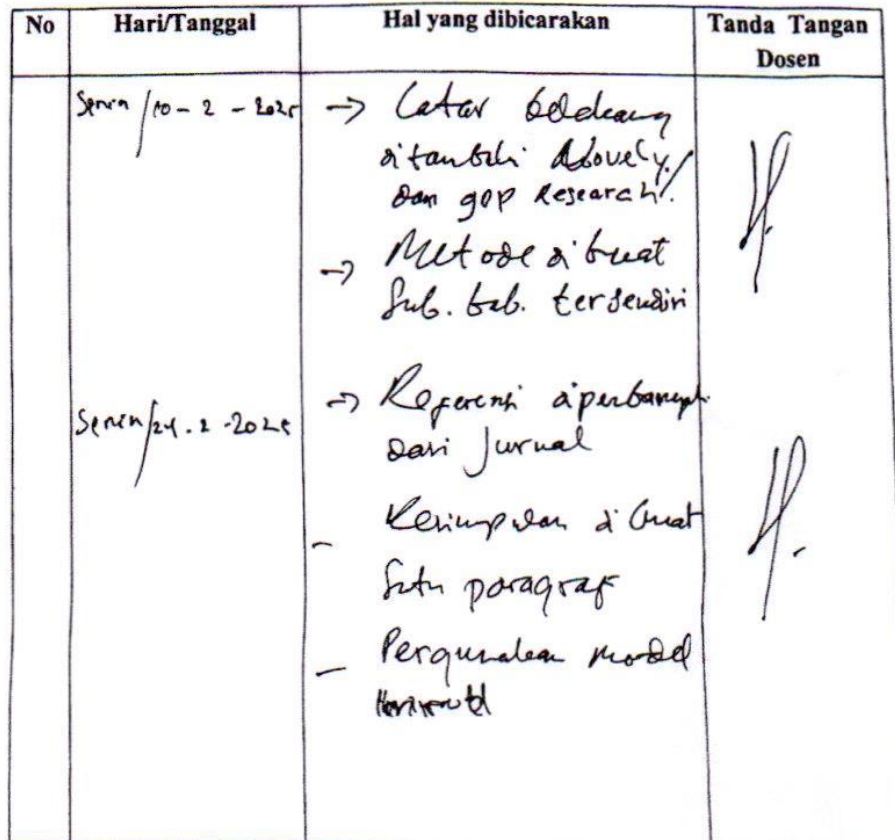 No Hari/Tanggal Hal yang dibicarakan Tanda Tangan
Dosen
Senin / 10 - 2 - 2025
→ Latar belakang
ditambahi Novelty
dan gap Research!
→ Metode dibuat
Sub. bab. tersendiri
Senin / 24 . 2 - 2025
→ Referensi diperbanyak
dari Jurnal
- Kesimpulan dibuat
Satu paragraf
- Pergunakan model